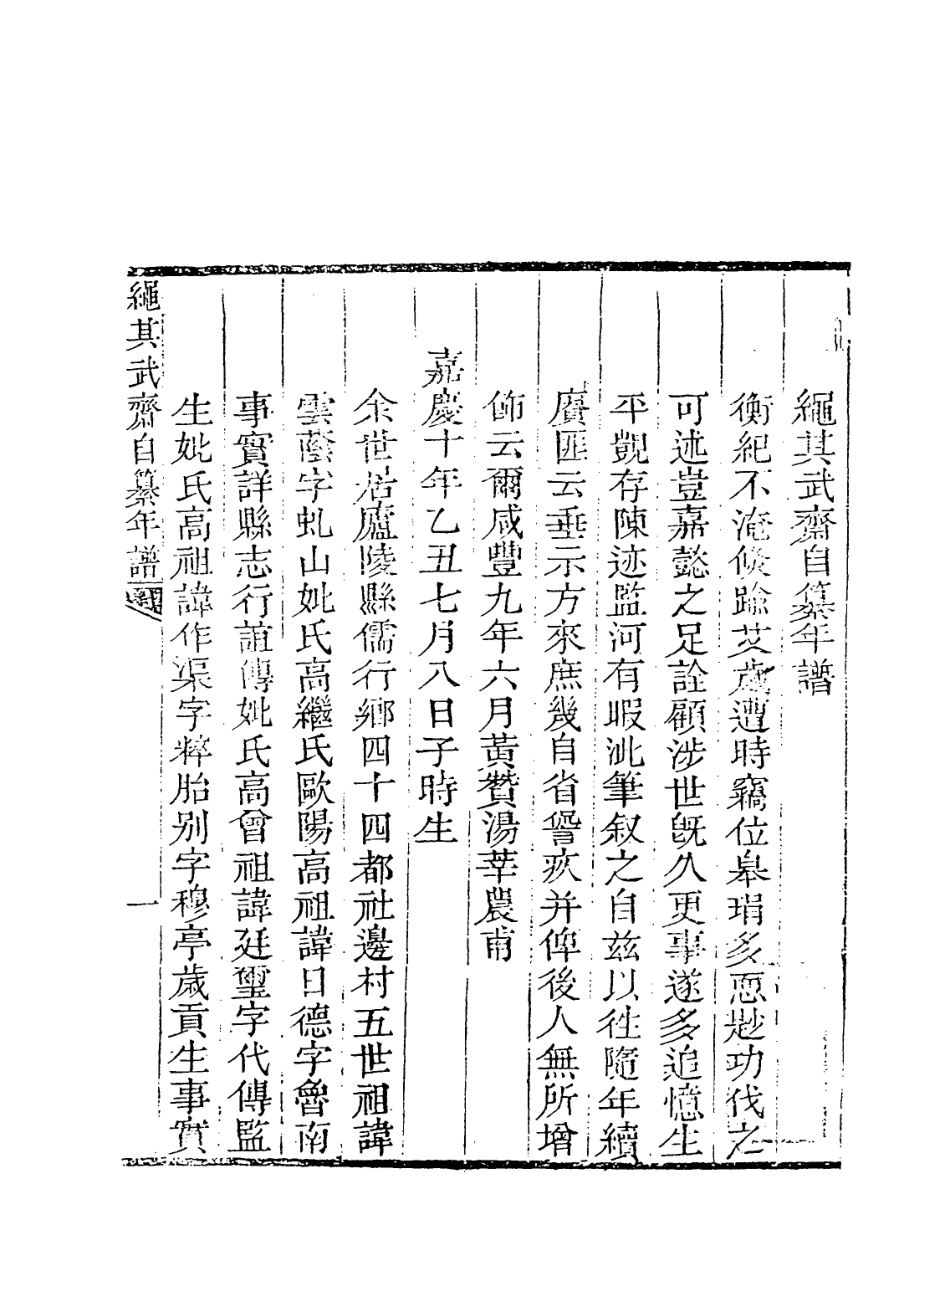 繩其武齋自纂年譜
衡紀不淹倏踰艾歲遭時竊位辠琄多恧尟功伐之
可述豈嘉懿之足詮顧涉世旣久更事遂多追憶生
平覬存陳迹監河有暇泚筆叙之自玆以徃隨年續
賡匪云垂示方來庶幾自省諐疚并俾後人無所增
飾云爾咸豐九年六月黃贊湯莘農甫
嘉慶十年乙丑七月八日子時生
余世居廬陵縣儒行鄉四十四都社邊村五世祖諱
雲蔭字虬山妣氏高繼氏歐陽高祖諱日德字魯南
事實詳縣志行誼傳妣氏高曾祖諱廷璽字代傳監
生妣氏高祖諱作渠字粹胎别字穆亭歲貢生事實
繩其武齋自纂年譜
一